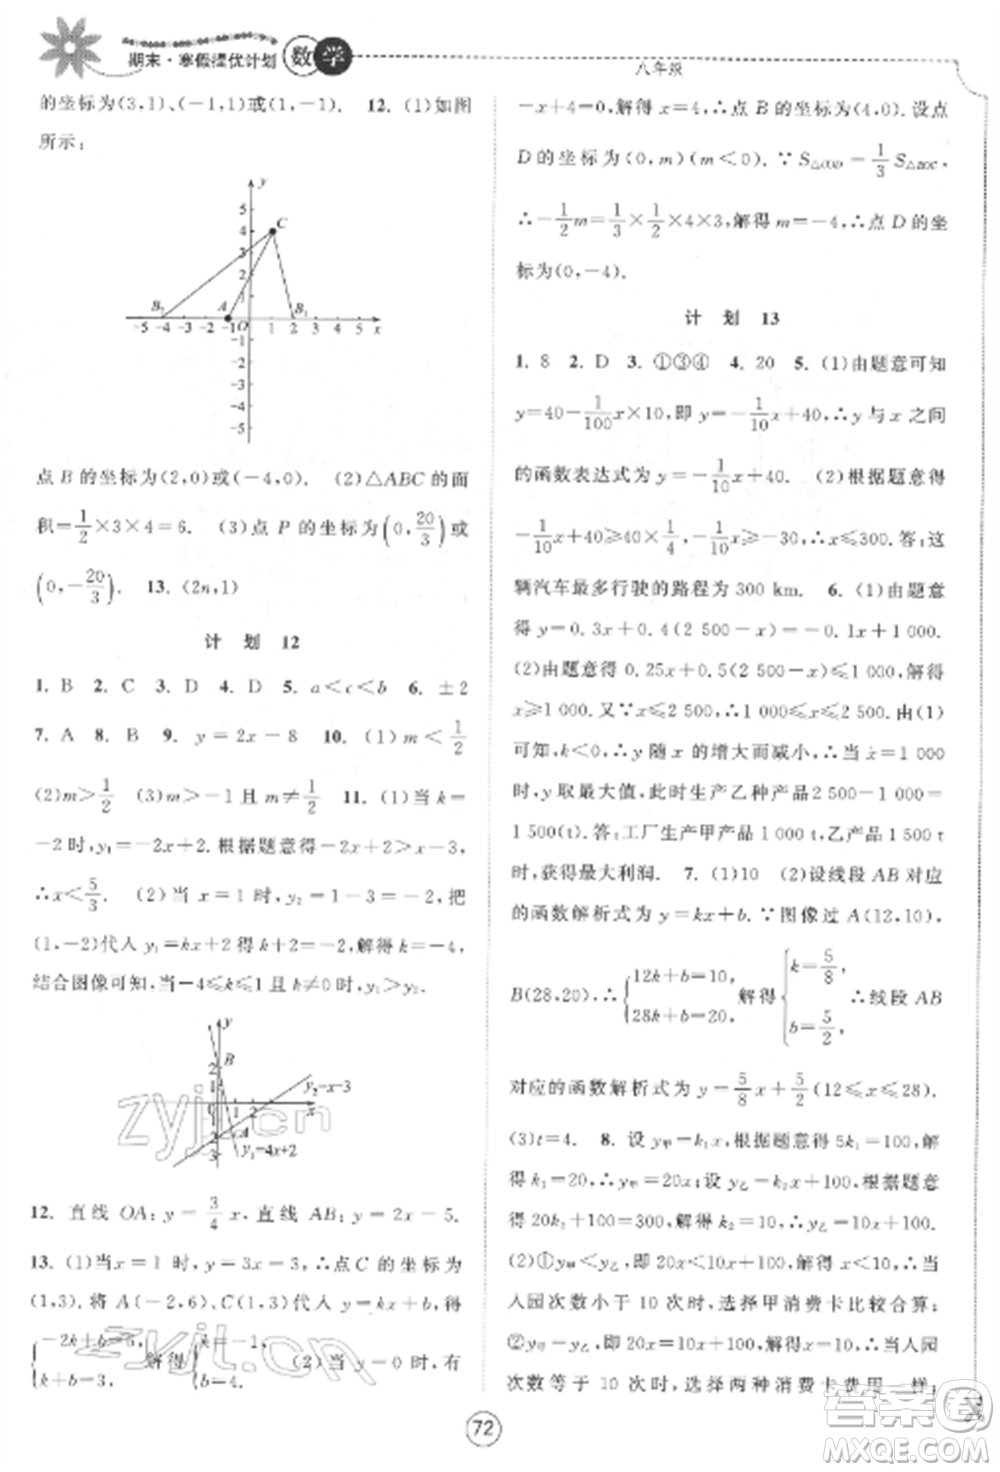 期末·寒假提优计划 数学
八年级
的坐标为(3,1)、(-1,1)或(1,-1). 12. (1)如图
所示:
y
5
4
3
2
1
C
B₂ A B₁
-5-4-3-2-1O 1 2 3 4 5 x
-1
-2
-3
-4
-5
点 B 的坐标为(2,0)或(-4,0). (2)△ABC 的面
积=1/2×3×4=6. (3)点 P 的坐标为(0,20/3)或
(0,-20/3) 13. (2n,1)
计 划 12
1. B 2. C 3. D 4. D 5. a<c<b 6. ±2
7. A 8. B 9. y=2x-8 10. (1)m<1/2
(2)m>1/2 (3)m>-1 且 m≠1/2 11. (1)当 k=
-2时,y₁=-2x+2. 根据题意,得-2x+2>x-3,
∴x<5/3. (2)当 x=1 时,y=x-3=-2,把
(1,-2)代入 y₁=kx+2 得 k+2=-2,解得 k=-4,
结合图像可知,当-4≤k≤1且k≠0时,y₁>y₂.
y
B
2
1
1 2
x
y₂=x-3
y₁=-4x+2
12. 直线 OA:y=3/4 x. 直线 AB:y=2x-5.
13. (1)当x=1 时,y=3x=3,∴点 C 的坐标为
(1,3). 将 A(-2,6)、C(1,3)代入 y=kx+b,得
{-2k+b=6, k+b=3, 解得{k=-1, b=4. (2)当 y=0 时,有
-x+4=0,解得 x=4,∴点 B 的坐标为(4,0). 设点
D 的坐标为(0,m)(m<0). ∵S△COD=1/3 S△BOC,
∴-1/2m=1/3×1/2×4×3,解得 m=-4,∴点 D 的坐
标为(0,-4).
计 划 13
1. 8 2. D 3. ①③④ 4. 20 5. (1)由题意可知
y=40-1/100x×10,即 y=-1/10x+40,∴y 与 x 之间
的函数表达式为 y=-1/10x+40. (2)根据题意得
-1/10x+40≥40×1/4,-1/10x≥-30,x≤300. 答:这
辆汽车最多行驶的路程为 300 km. 6. (1)根据题意
得 y=0.3x+0.4(2 500-x)=-0.1x+1 000.
(2)由题意得 0.25x+0.5(2 500-x)≤1 000,解得
x≥1 000. 又∵x≤2 500,∴1 000≤x≤2 500. 由(1)
可知,k<0,∴y 随 x 的增大而减小,∴当 x=1 000
时,y 取最大值,此时生产乙种产品 2 500-1 000=
1 500(t). 答:工厂生产甲产品 1 000 t,乙产品 1 500 t
时,获得最大利润. 7. (1)10 (2)设线段 AB 对应
的函数解析式为 y=kx+b. ∵图像过 A(12,10),
B(28,20),∴{12k+b=10, 28k+b=20, 解得{k=5/8, b=5/2, ∴线段 AB
对应的函数解析式为 y=5/8x+5/2(12≤x≤28).
(3)t=4. 8. 设 y甲=k₁x,根据题意得 5k₁=100,解
得 k₁=20,∴y甲=20x;设 y乙=k₂x+100,根据题意
得 20k₂+100=300,解得 k₂=10,∴y乙=10x+100.
(2)①y甲<y乙,即 20x<10x+100,解得 x<10,当
入园次数小于 10 次时,选择甲消费卡比较合算;
②y甲=y乙,即 20x=10x+100,解得 x=10,当入园
次数等于 10 次时,选择两种消费卡费用一样;
72
zyjl.cn
zyjl.cn
答案圈
MXQE.COM